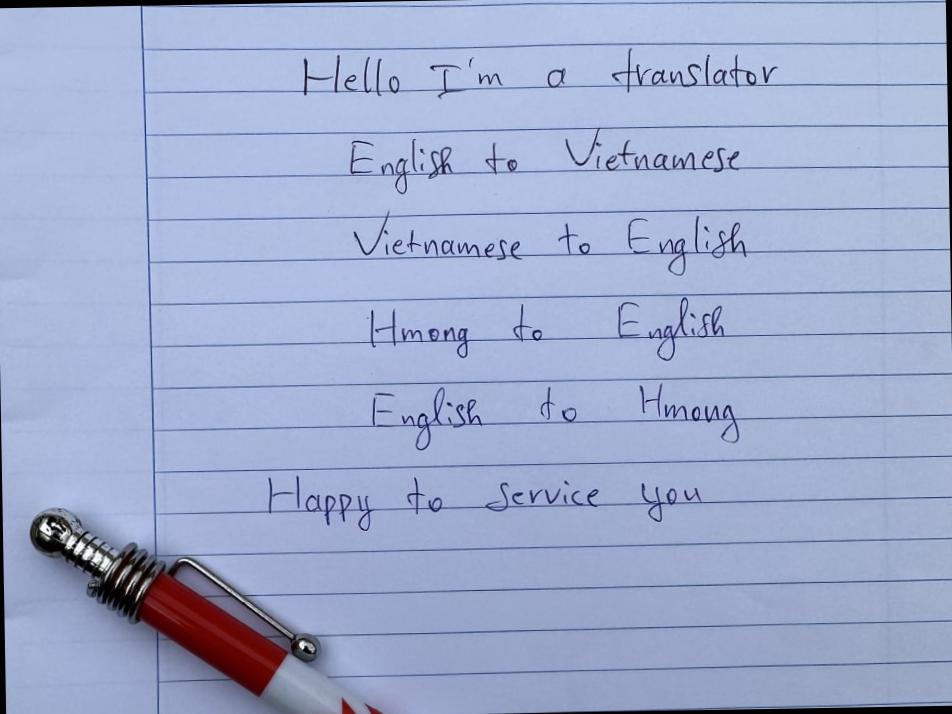 Hello I'm a translator
English to Vietnamese
Vietnamese to English
Hmong to English
English to Hmong
Happy to service you